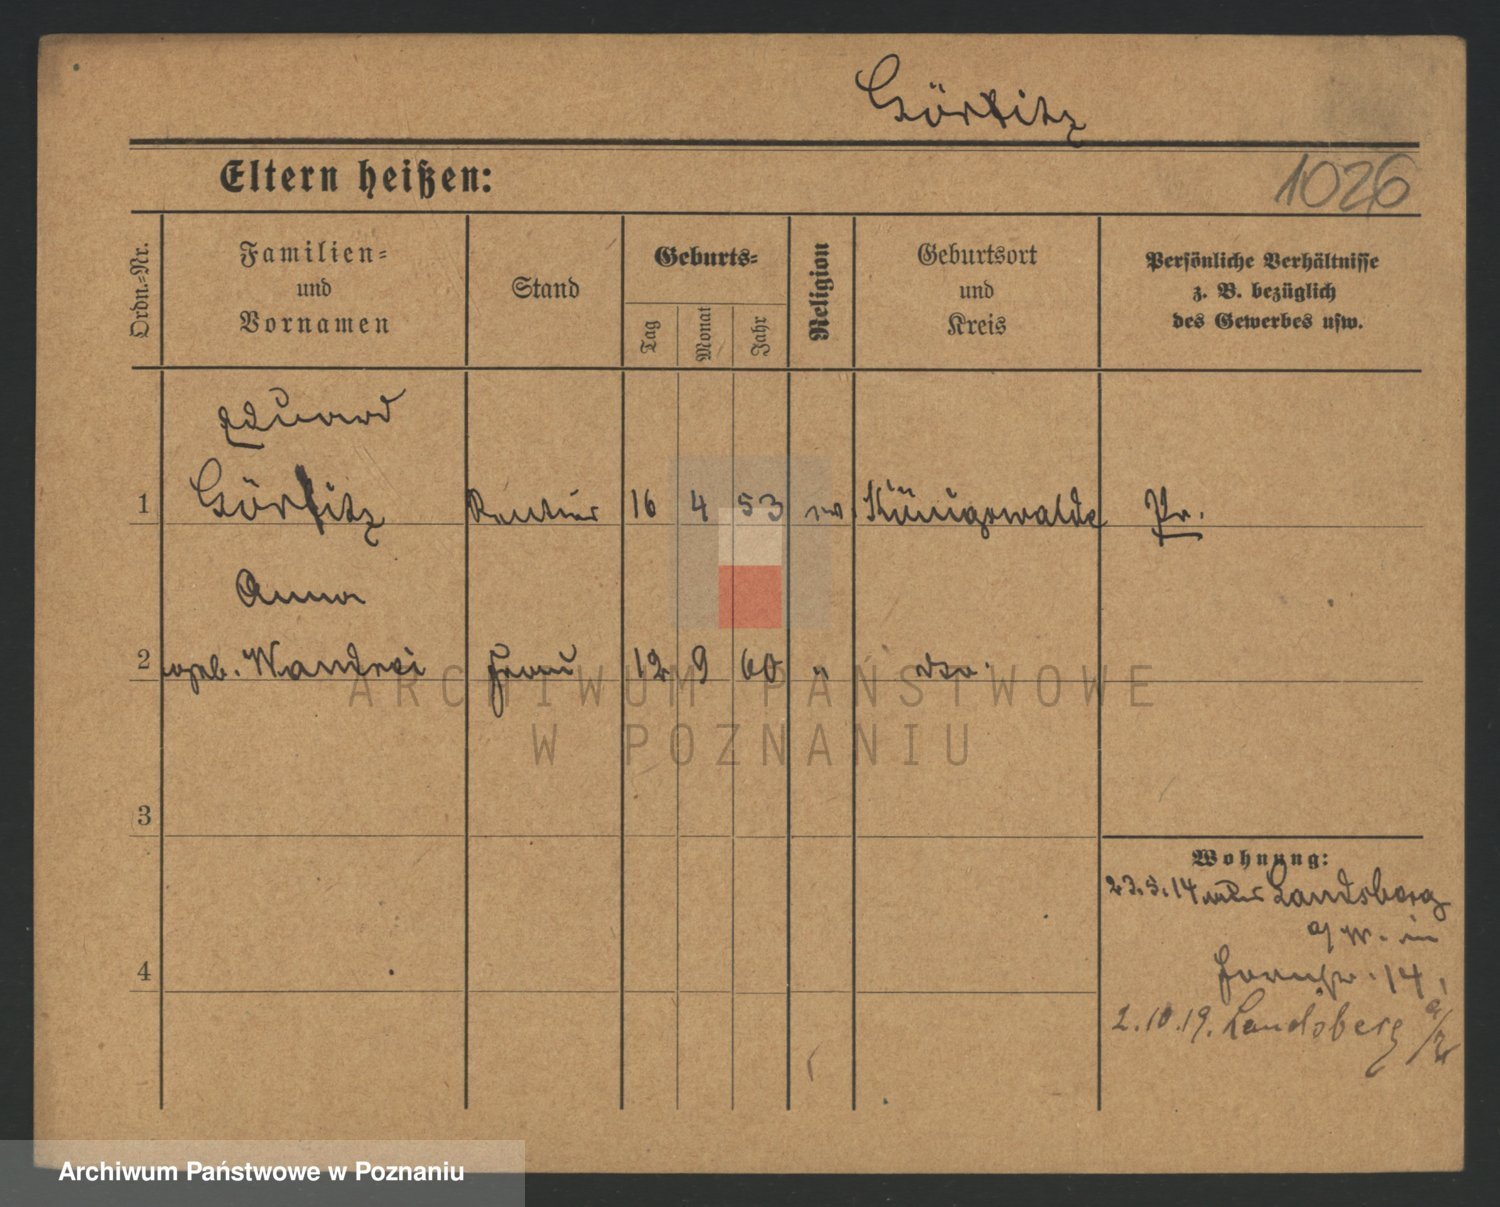 Görlitz
Eltern heißen:
1026
Ordn.=Nr.
Familien=
und
Vornamen
Stand
Geburts=
Tag
Monat
Jahr
Religion
Geburtsort
und
Kreis
Persönliche Verhältnisse
z. B. bezüglich
des Gewerbes usw.
Eduard
1 Görlitz Rentier 16 4 53 ev Königswalde Pr.
Anna
2 geb. Wandrei Frau 12 9 60 " dto.
ARCHIWUM PAŃSTWOWE
W POZNANIU
3
Wohnung:
23.5.14 Landsberg
a/W. in
4
14.
2.10.19. Landsberg a/W
Archiwum Państwowe w Poznaniu